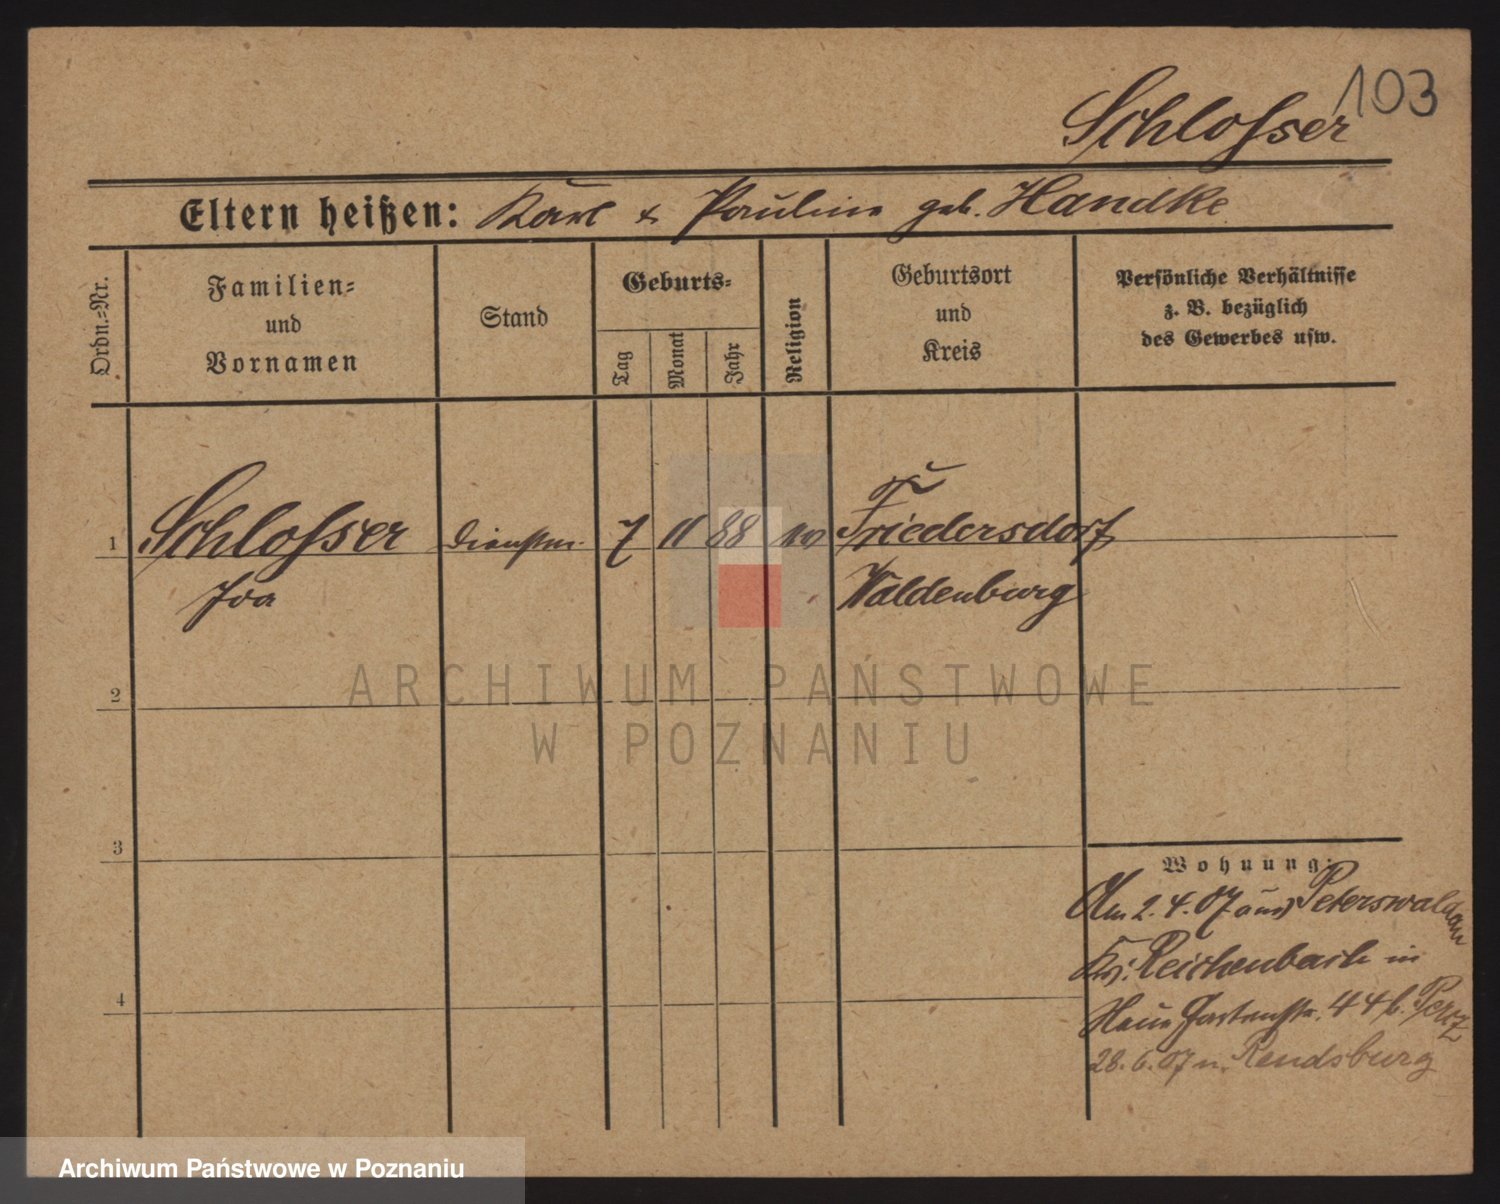 103
Schlosser
Eltern heißen: Karl & Pauline geb. Handke
Ordn.-Nr.
Familien-
und
Vornamen
Stand
Geburts-
Tag
Monat
Jahr
Religion
Geburtsort
und
Kreis
Persönliche Verhältnisse
z. B. bezüglich
des Gewerbes usw.
1 Schlosser Dienstm. 7 11 88 Friedersdorf
Ida Waldenburg
2
ARCHIWUM PAŃSTWOWE
W POZNANIU
3
Wohnung:
Am 2.4.07 aus Peterswaldau
Krs. Reichenbach in
Gartenstr. 44 b.
4
28.6.07 n. Rendsburg
Archiwum Państwowe w Poznaniu